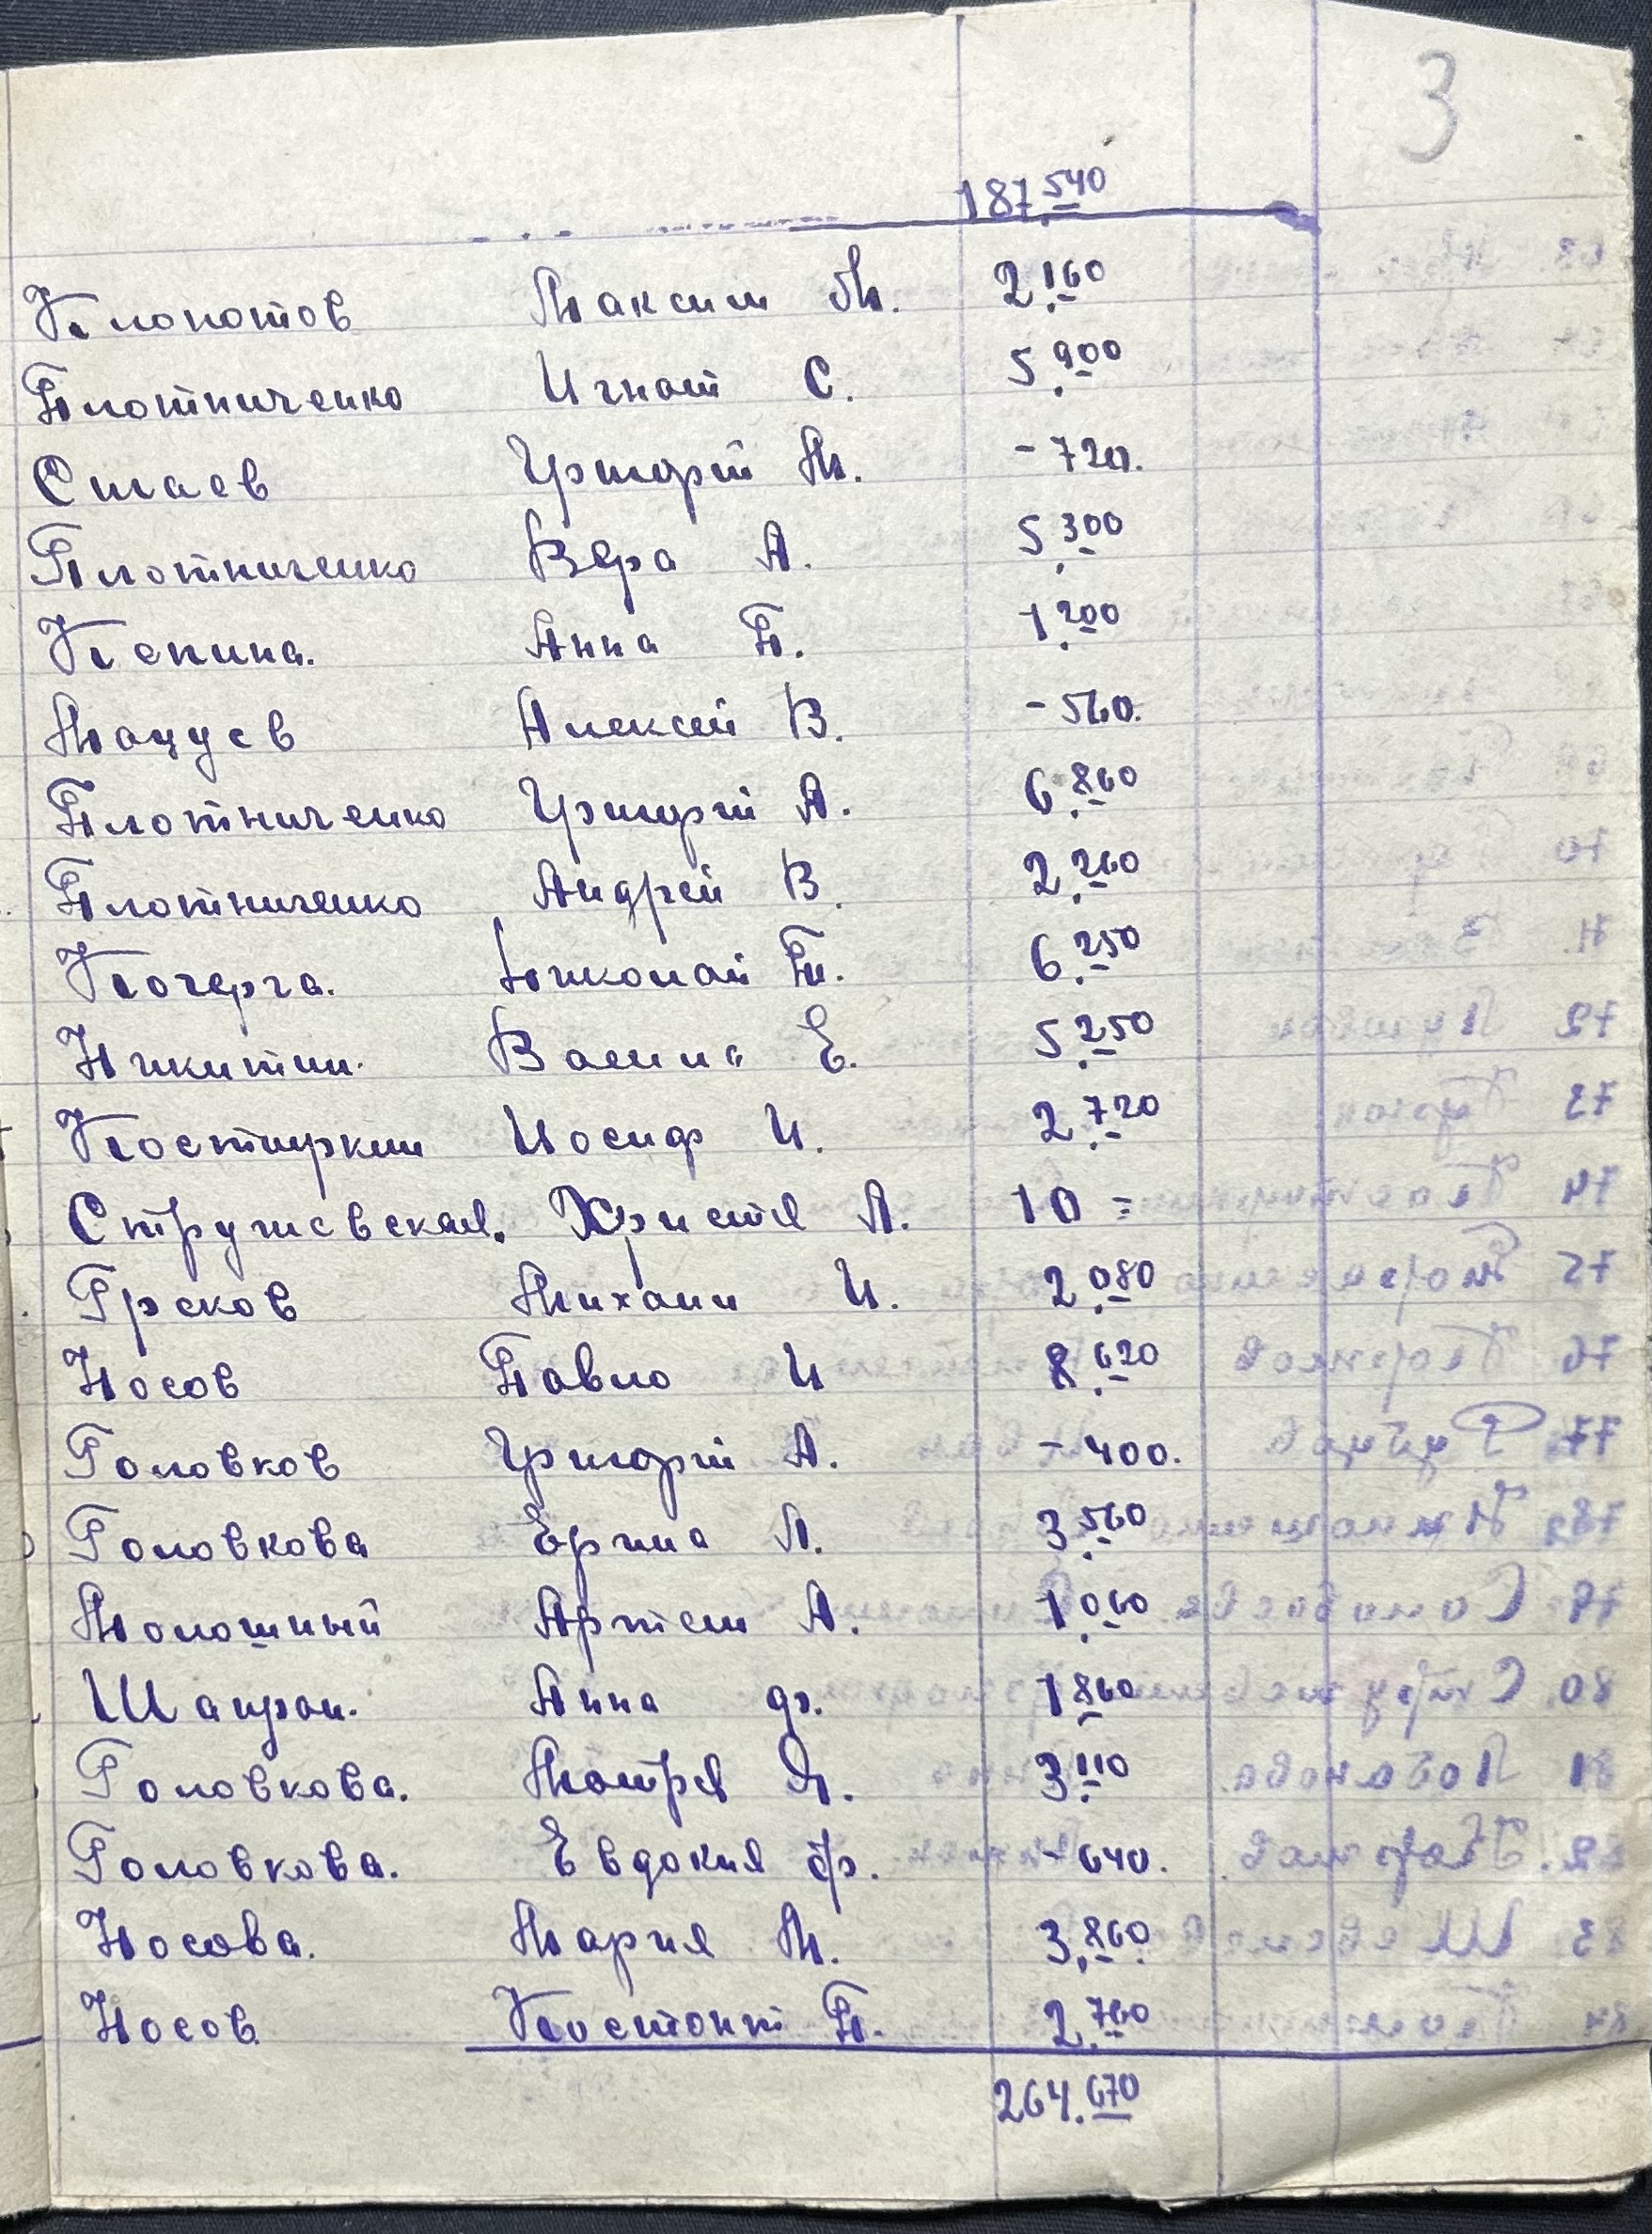 3
187.540
Клопотов Максим М. 2.160
Плотниченко Игнат С. 5.900
Слаев Григорій М. - 720.
Плотниченко Вера А. 5.300
Кепина. Анна П. 1.200
Мацуев Алексей В. - 560.
Плотниченко Григорій А. 6.860
Плотниченко Андрей В. 2.260
Кочерга. Николай П. 6.250
Никитин. Е. 5.250
Костиркин Иосиф И. 2.720
Стружевская. Христя А. 10 =
Греков Михаил И. 2.080
Носов Павло И 8.620
Головков Григорій А. - 400.
Головкова Ерина А. 3.560
Молошный Артем А. 1.060
Шапран. Анна ф. 1.860
Головкова. Мотря Я. 3.110
Головкова. Евдокия Ф. - 640.
Носова. Мария М. 3.860.
Носов Костонт П. 2.760
264.670